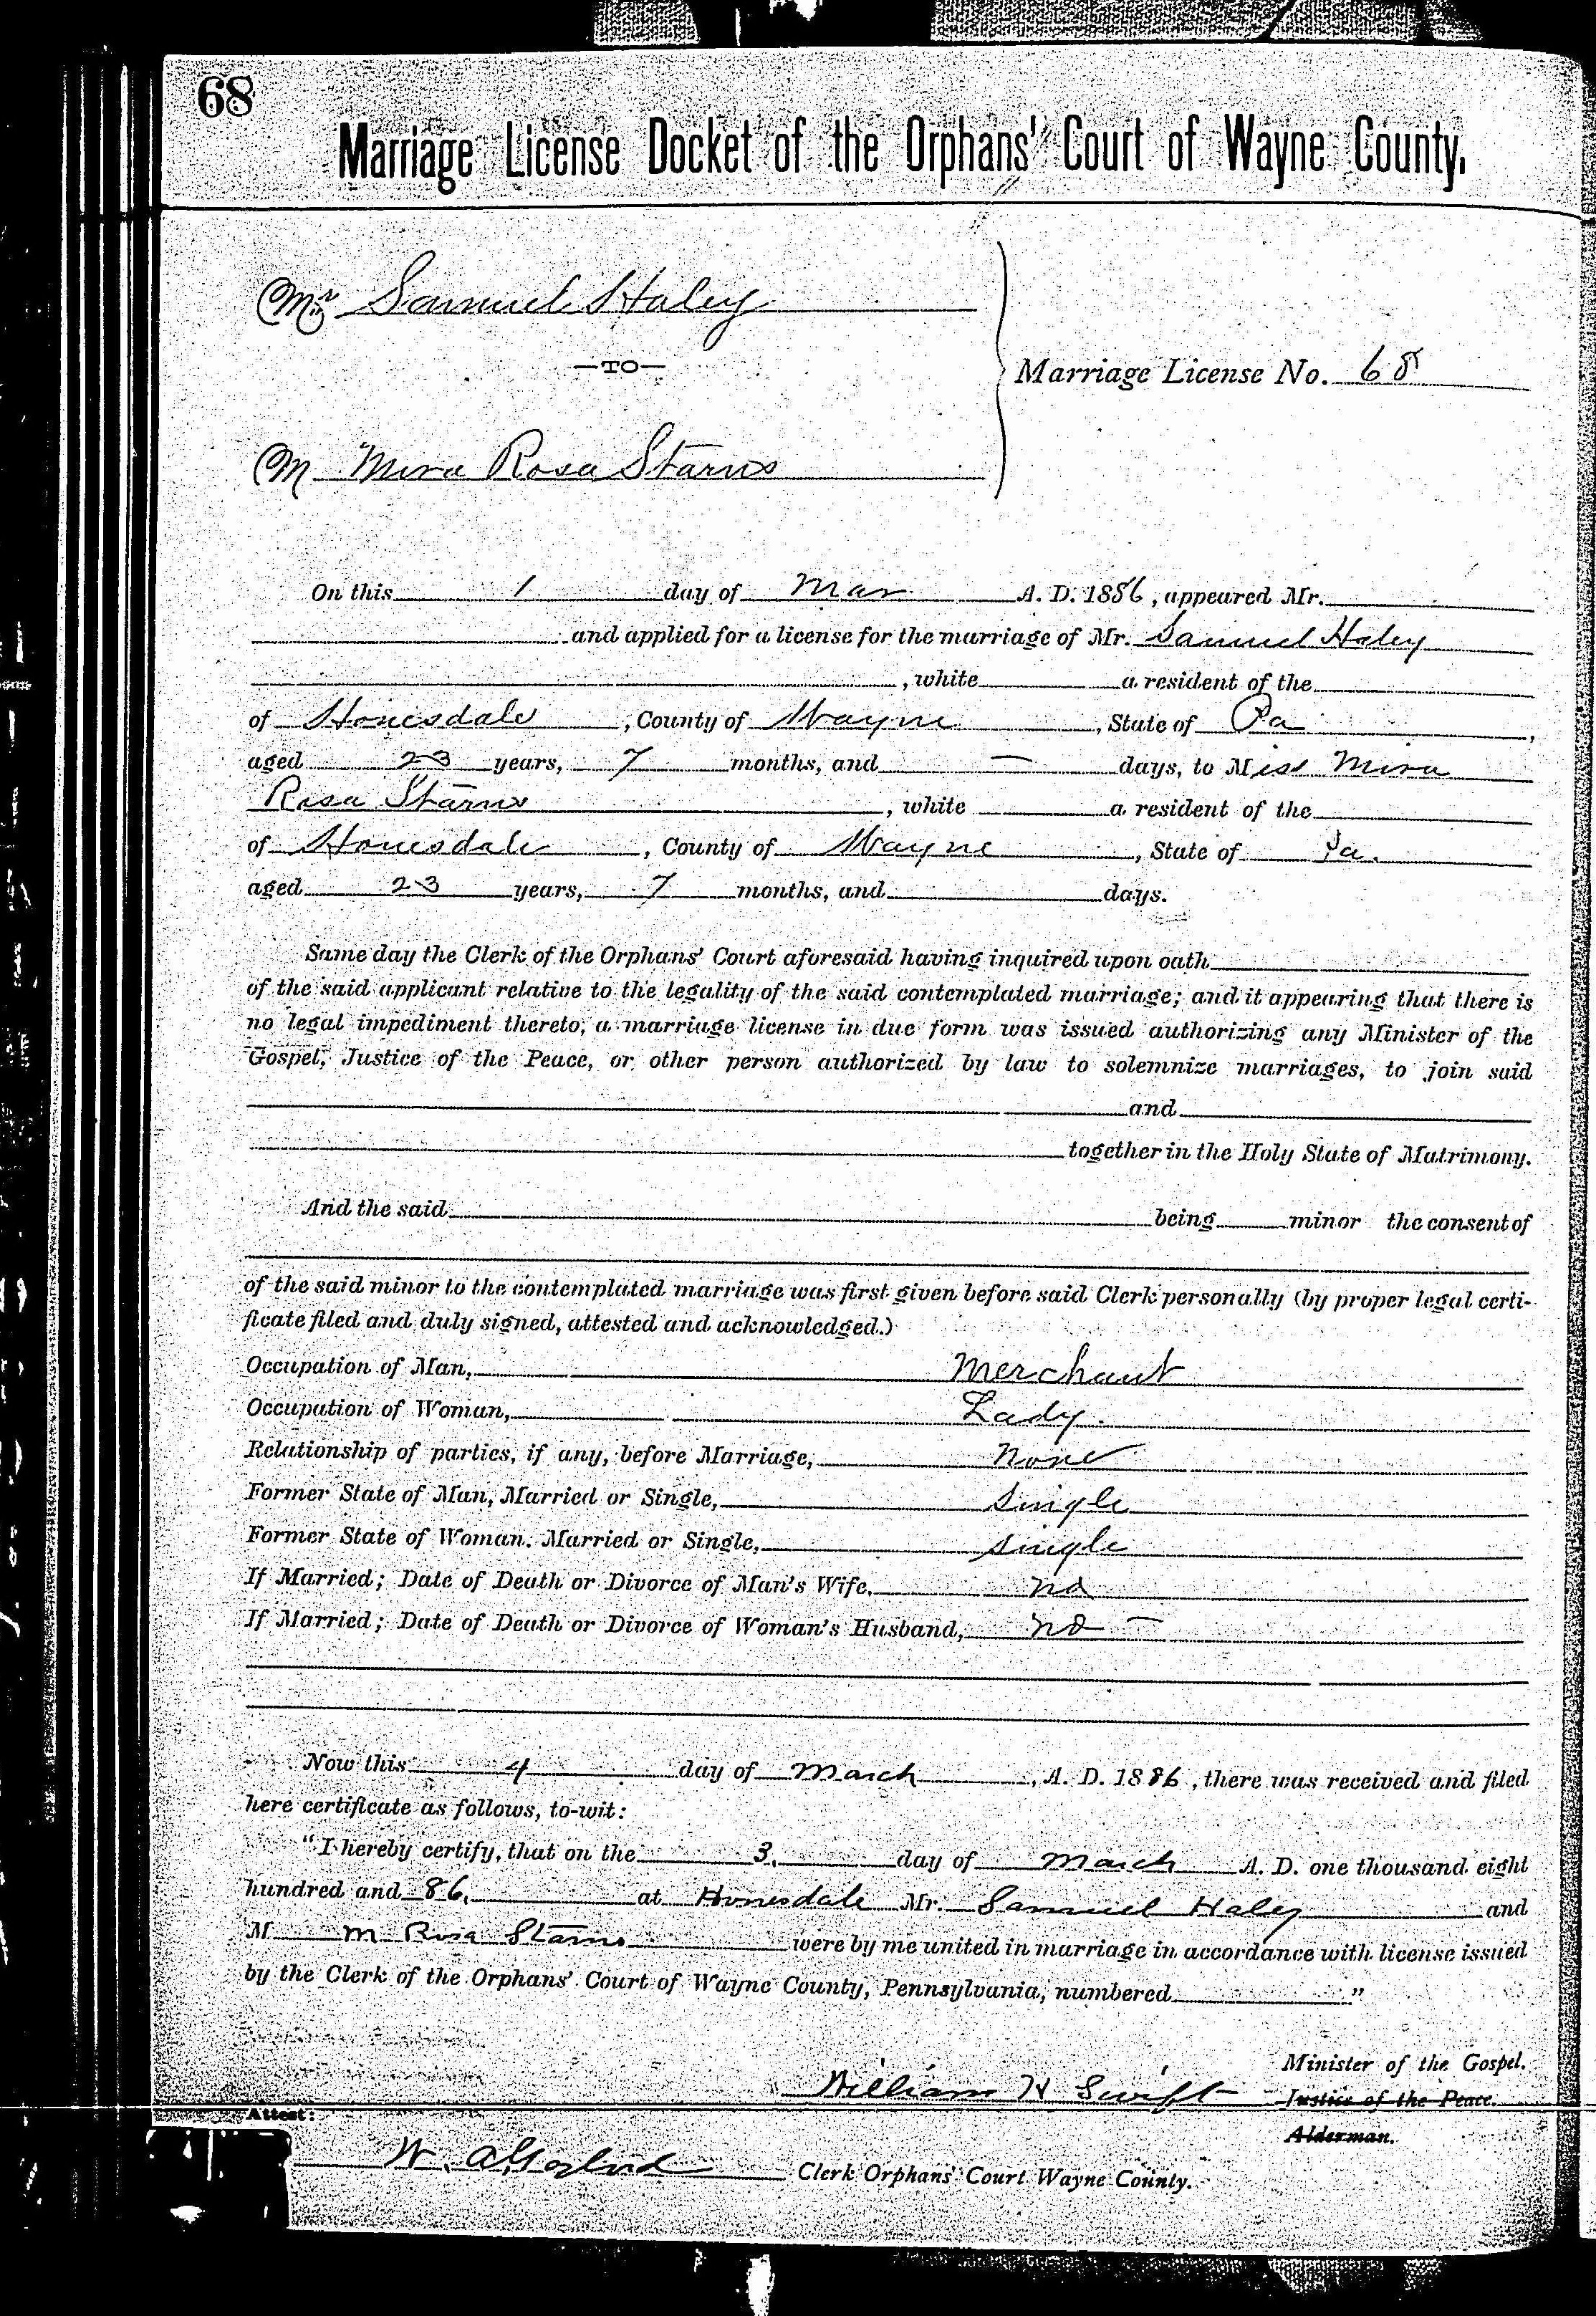 68
Marriage License Docket of the Orphans' Court of Wayne County.
Mr Samuel Haley
—TO—
Marriage License No. 68
M Mira Rosa Starns
On this 1 day of Mar A. D. 1886, appeared Mr.
and applied for a license for the marriage of Mr. Samuel Haley
, white a resident of the
of Honesdale, County of Wayne, State of Pa,
aged 23 years, 7 months, and — days, to Miss Mira
Rosa Starns, white a resident of the
of Honesdale, County of Wayne, State of Pa.
aged 23 years, 7 months, and days.
Same day the Clerk of the Orphans' Court aforesaid having inquired upon oath
of the said applicant relative to the legality of the said contemplated marriage; and it appearing that there is
no legal impediment thereto, a marriage license in due form was issued authorizing any Minister of the
Gospel, Justice of the Peace, or other person authorized by law to solemnize marriages, to join said
and
together in the Holy State of Matrimony.
And the said being minor the consent of
of the said minor to the contemplated marriage was first given before said Clerk personally (by proper legal certi-
ficate filed and duly signed, attested and acknowledged.)
Occupation of Man, Merchant
Occupation of Woman, Lady.
Relationship of parties, if any, before Marriage, None
Former State of Man, Married or Single, Single
Former State of Woman. Married or Single, single
If Married; Date of Death or Divorce of Man's Wife, no
If Married; Date of Death or Divorce of Woman's Husband, no —
Now this 4 day of March, A. D. 1886, there was received and filed
here certificate as follows, to-wit:
"I hereby certify, that on the 3. day of March A. D. one thousand eight
hundred and 86, at Honesdale Mr. Samuel Haley and
M M Rosa Starns were by me united in marriage in accordance with license issued
by the Clerk of the Orphans' Court of Wayne County, Pennsylvania, numbered "
Minister of the Gospel.
William H Swift Justice of the Peace.
Attest:
Alderman.
W. A. Gaylord Clerk Orphans' Court Wayne County.